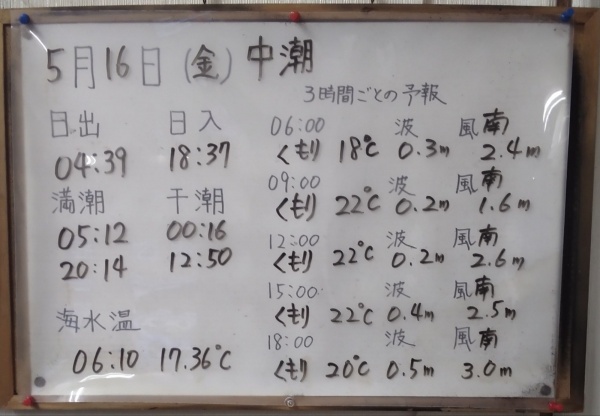 5月16日(金)中潮
日出 日入
04:39 18:37
満潮 干潮
05:12 00:16
20:14 12:50
海水温
06:10 17.36℃
3時間ごとの予報
06:00 波 風南
くもり 18℃ 0.3m 2.4m
09:00 波 風南
くもり 22℃ 0.2m 1.6m
12:00 波 風南
くもり 22℃ 0.2m 2.6m
15:00 波 風南
くもり 22℃ 0.4m 2.5m
18:00 波 風南
くもり 20℃ 0.5m 3.0m